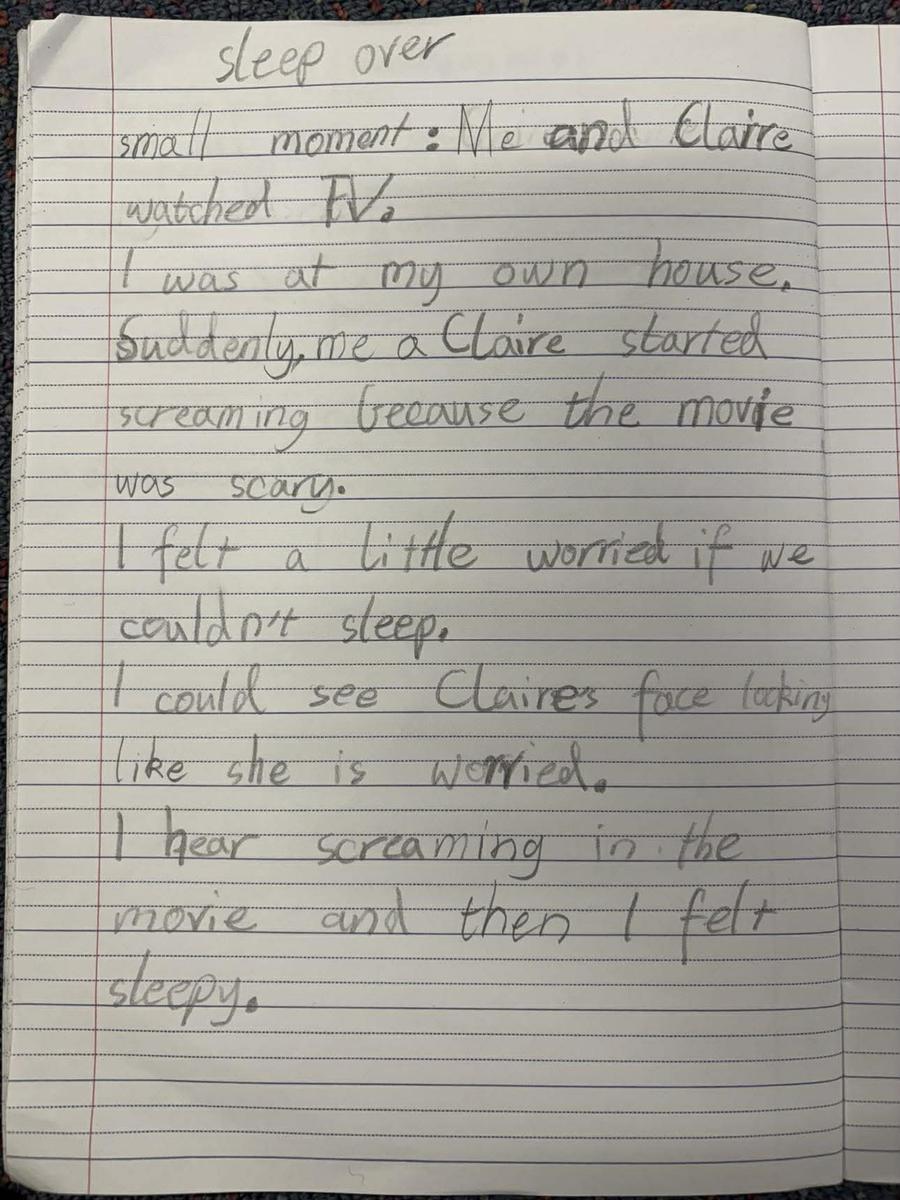 sleep over
small moment: Me and Claire
watched TV.
I was at my own house.
Suddenly, me a Claire started
screaming because the movie
was scary.
I felt a little worried if we
couldn't sleep.
I could see Claire's face looking
like she is worried.
I hear screaming in the
movie and then I felt
sleepy.